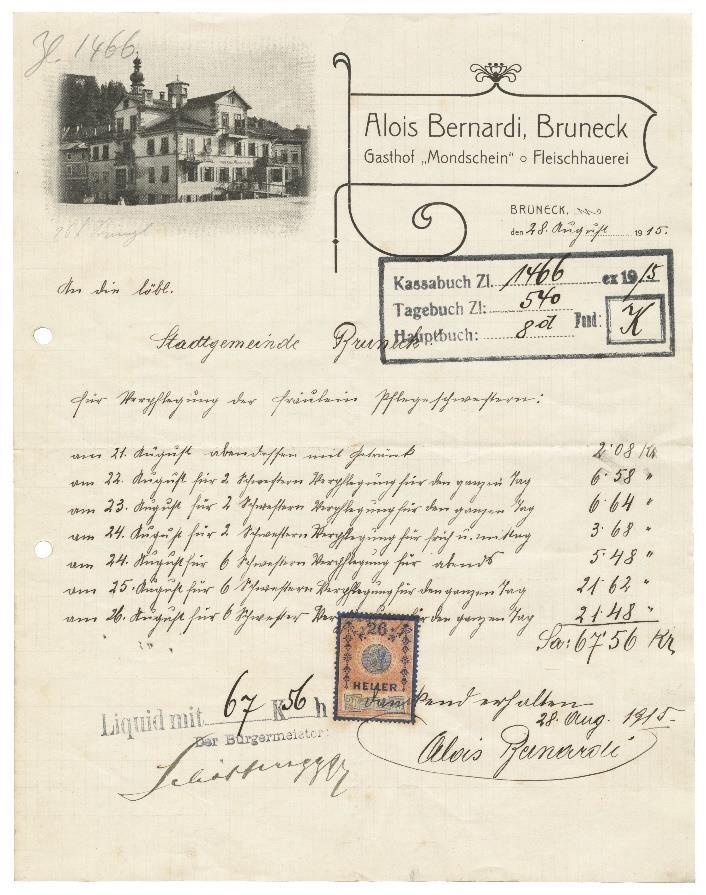 Zl. 1466
Alois Bernardi, Bruneck
Gasthof „Mondschein“ o Fleischhauerei
BRUNECK,
den 28. August 1915.
Kassabuch Zl. 1466 ex 1915
Tagebuch Zl: 540
Hauptbuch: 8 d Fond: K
An die löbl.
Stadtgemeinde Bruneck
für Verpflegung der Fräulein Pflegeschwestern:
am 21. August abendessen mit Getränk 2·08 Kr
am 22. August für 2 Schwestern Verpflegung für den ganzen Tag 6·58 "
am 23. August für 2 Schwestern Verpflegung für den ganzen Tag 6 64 "
am 24. August für 2 Schwestern Verpflegung für früh u. mittag 3·68 "
am 24. August für 6 Schwestern Verpflegung für abends 5·48 "
am 25. August für 6 Schwestern Verpflegung für den ganzen Tag 21·62 "
am 26. August für 6 Schwester Ver für den ganzen Tag 21·48 "
Sa: 67·56 Kr
26
HELLER
dankend erhalten
28. Aug. 1915.
Alois Bernardi
Liquid mit 67 K 56 h
Der Bürgermeister: